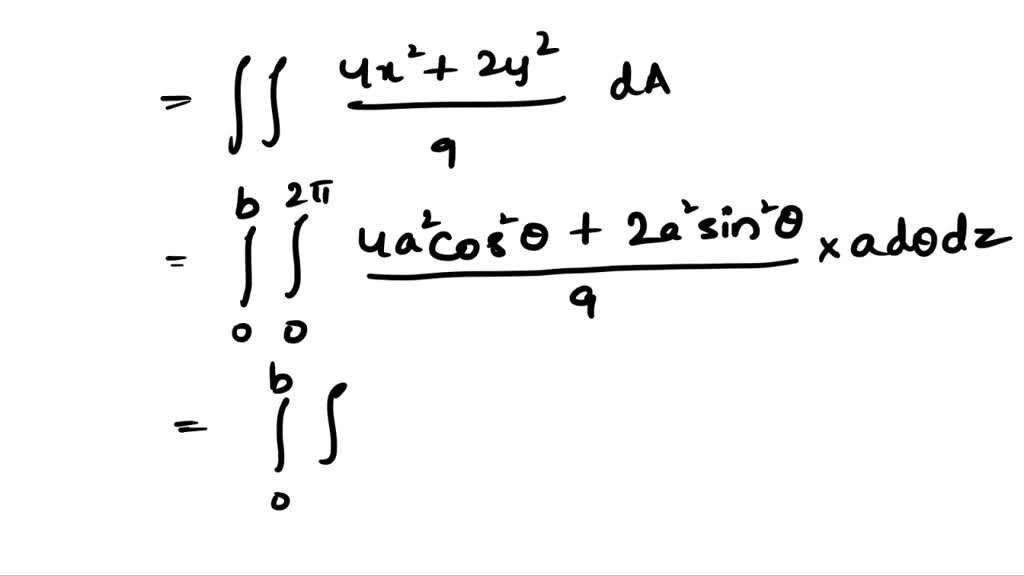 = ∫∫ (4x² + 2y²)/9 dA
= ∫₀ᵇ ∫₀²π (4a²cos²θ + 2a²sin²θ)/9 × a dθ dz
= ∫₀ᵇ ∫